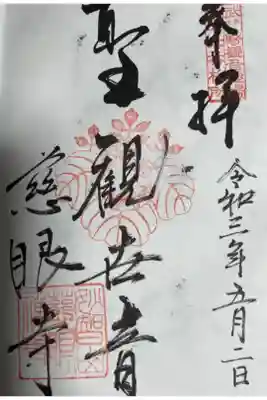 奉拝
令和三年五月二日
聖觀世音
慈眼寺